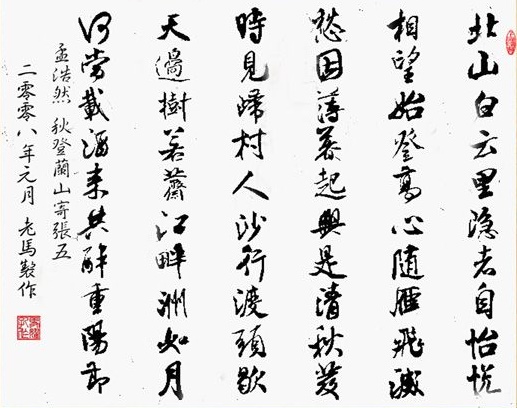 北山白云里隐者自怡悦
相望始登高心隨雁飛滅
愁因薄暮起興是清秋發
時見歸村人沙行渡頭歇
天邊樹若薺江畔洲如月
何當載酒來共醉重陽節
孟浩然 秋登蘭山寄張五
二零零八年元月 老馬製作